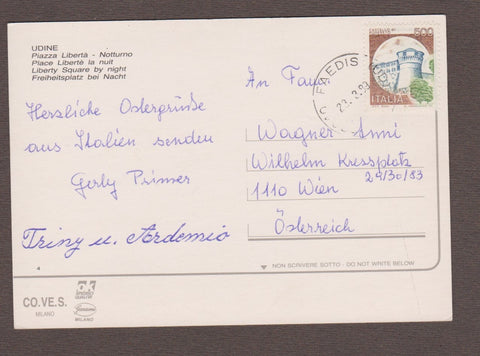 UDINE
Piazza Libertà - Notturno
Place Liberté la nuit
Liberty Square by night
Freiheitsplatz bei Nacht
Herzliche Ostergrüße
aus Italien senden
Gerly Primer
Triny u. Ardemio
4
CO.VE.S.
MILANO
MILANO
500
ITALIA
FAEDIS
An Frau
Wagner Anni
Wilhelm Kressplatz
29/30/83
1110 Wien
Österreich
NON SCRIVERE SOTTO - DO NOT WRITE BELOW